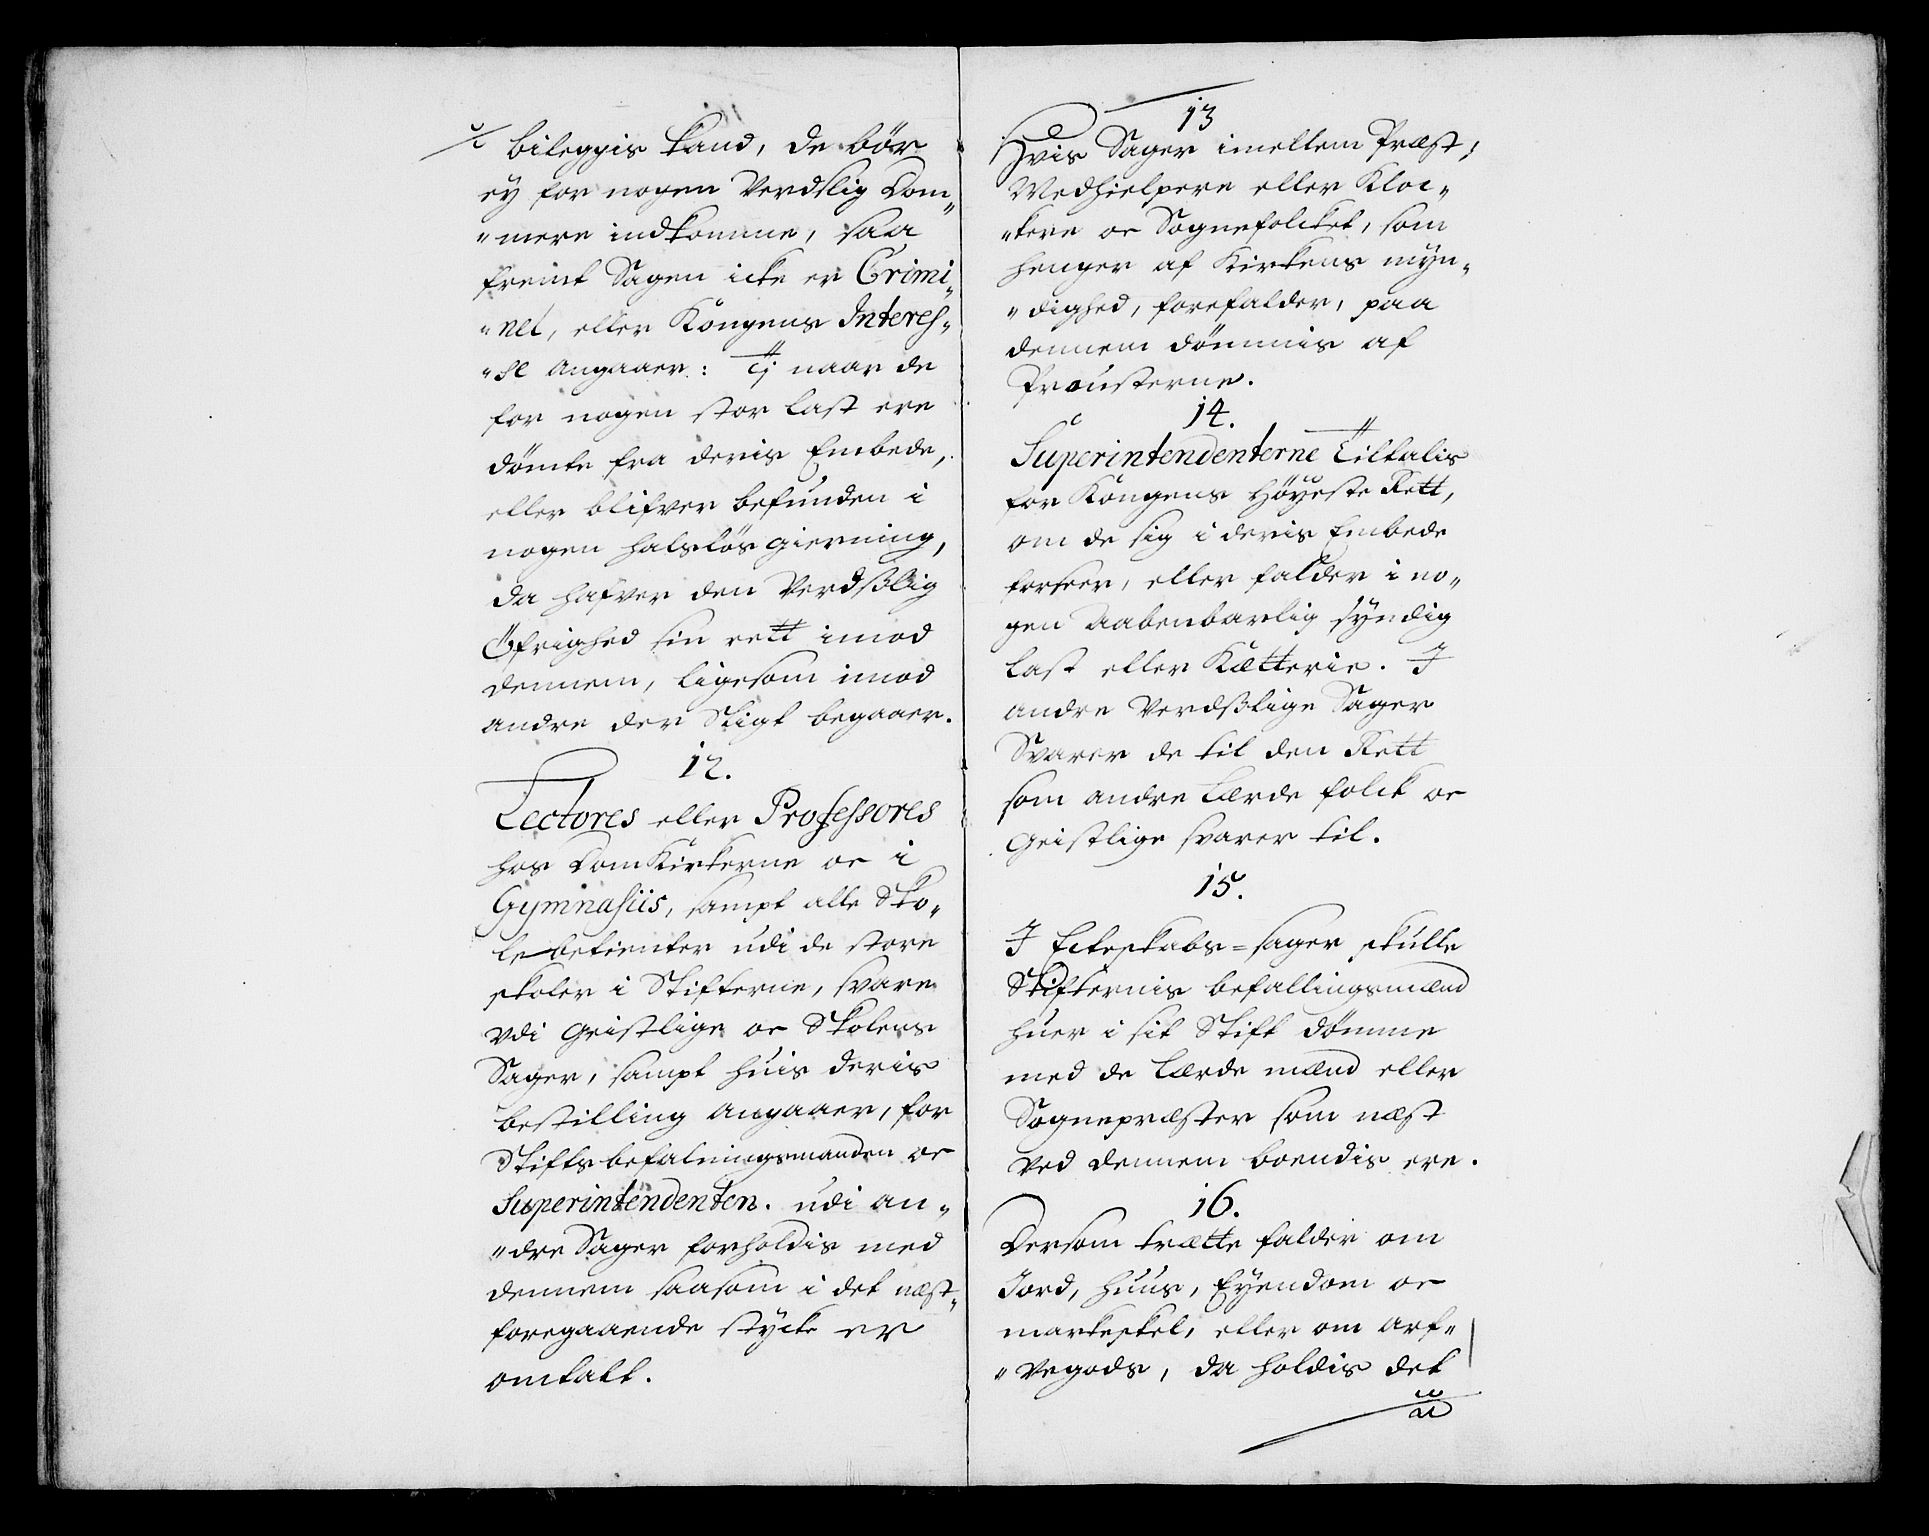 bileggis kand, de bör
ey for nogen Verdslig Dom„
„mere indkomme, saa
fremt Sagen icke er Crimi„
„nel, eller Kongens Interes„
„se angaaer: Tj naar de
for nogen stor last ere
dömte fra deris Embede,
eller blifver befunden i
nogen halslös gierning,
da hafver den Verdßlig
Öfrighed sin rett imod
dennem, ligesom imod
andre der Sligt begaaer.
12.
Lectores eller Professores
hos DomKirkerne oc i
Gymnasiis, sampt alle Sko„
le betienter udi de store
skoler i Stifterne, svare
Vdi Geistlige oc Skolens
Sager, sampt huis deris
bestilling angaaer, for
Stiftsbefalningsmanden oc
Superintendenten. udi an„
„dre Sager forholdis med
dennem saasom i det næst„
foregaaende stycke er
omtalt.
13
Hvis Sager imellem Præst,
Medhielpere eller Kloc„
„kere oc Sognefolcket, som
henger af Kirkens myn„
„dighed, forefalder, paa
dennem dömmis af
Prousterne.
14.
Superintendenterne Tiltalis
for Kongens Höyeste Rett,
om de sig i deris Embede
forseer, eller falder i no„
gen Aabenbarlig syndig
last eller Kætterie. I
andre Verdßlige Sager
Svarer de til den Rett
som andre Lærde folck oc
Geistlige svarer til.
15.
I Ecteskabs=sager skulle
Stifternis befallingsmænd
huer i sit Stift dömme
med de Lærde mænd eller
Sognepræster som næst
Ved dennem boendis ere.
16.
Dersom trætte falder om
Jord, Huus, Eyendom oc
markeskel, eller om Arf„
„vegods, da holdis det